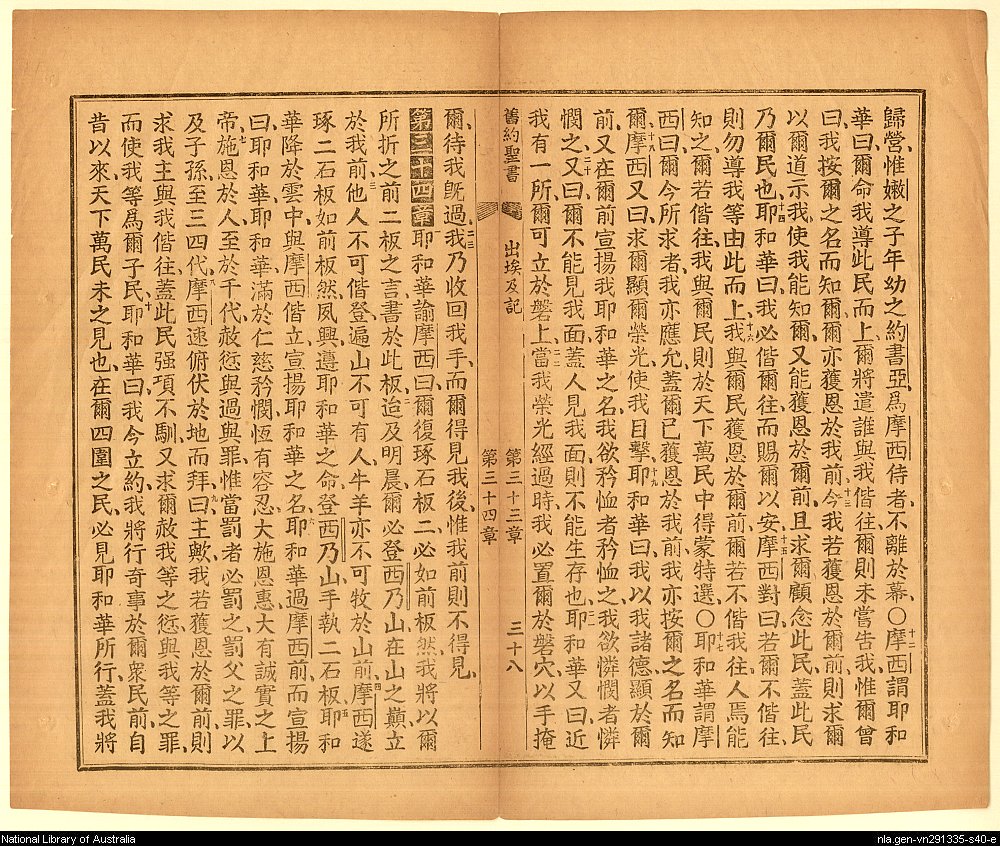 歸營、惟嫩之子年幼之約書亞、爲摩西侍者、不離於幕、〇十二摩西謂耶和
華曰、爾命我導此民而上、爾將遣誰與我偕往、爾則未嘗告我、惟爾曾
曰、我按爾之名而知爾、爾亦獲恩於我前、十三今我若獲恩於爾前、則求爾
以爾道示我、使我能知爾、又能獲恩於爾前、且求爾顧念此民、蓋此民
乃爾民也、十四耶和華曰、我必偕爾往、而賜爾以安、十五摩西對曰、若爾不偕往、
則勿導我等由此而上、十六我與爾民獲恩於爾前、爾若不偕我往、人焉能
知之、爾若偕往、我與爾民、則於天下萬民中得蒙特選、〇十七耶和華謂摩
西曰、爾今所求者、我亦應允、蓋爾已獲恩於我前、我亦按爾之名而知
爾、十八摩西又曰、求爾顯爾榮光、使我目擊、十九耶和華曰、我以我諸德顯於爾
前、又在爾前宣揚我耶和華之名、我欲矜恤者矜恤之、我欲憐憫者憐
憫之、二十又曰、爾不能見我面、蓋人見我面、則不能生存也、二一耶和華又曰、近
我有一所、爾可立於磐上、二二當我榮光經過時、我必置爾於磐穴、以手掩
舊約聖書 出埃及記 第三十三章 三十八
第三十四章
爾、待我旣過、二三我乃收回我手、而爾得見我後、惟我前則不得見、
第三十四章一耶和華諭摩西曰、爾復琢石板二、必如前板然、我將以爾
所折之前二板之言、書於此板、二迨及明晨、爾必登西乃山、在山之巔、立
於我前、三他人不可偕登、遍山不可有人、牛羊亦不可牧於山前、四摩西遂
琢二石板如前板然、夙興、遵耶和華之命、登西乃山、手執二石板、五耶和
華降於雲中、與摩西偕立、宣揚耶和華之名、六耶和華過摩西前、而宣揚
曰、耶和華、耶和華、滿於仁慈矜憫、恆有容忍、大施恩惠、大有誠實之上
帝、七施恩於人至於千代、赦愆與過與罪、惟當罰者必罰之、罰父之罪、以
及子孫、至三四代、八摩西速俯伏於地而拜曰、九主歟、我若獲恩於爾前、則
求我主與我偕往、蓋此民强項不馴、又求爾赦我等之愆、與我等之罪、
而使我等爲爾子民、十耶和華曰、我今立約、我將行奇事於爾衆民前、自
昔以來、天下萬民未之見也、在爾四圍之民、必見耶和華所行、蓋我將
National Library of Australia
nla.gen-vn291335-s40-e